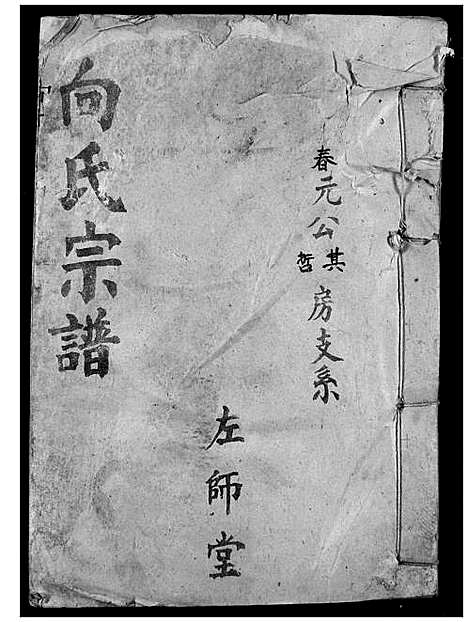 春元公其哲房支系
左師堂
向氏宗譜